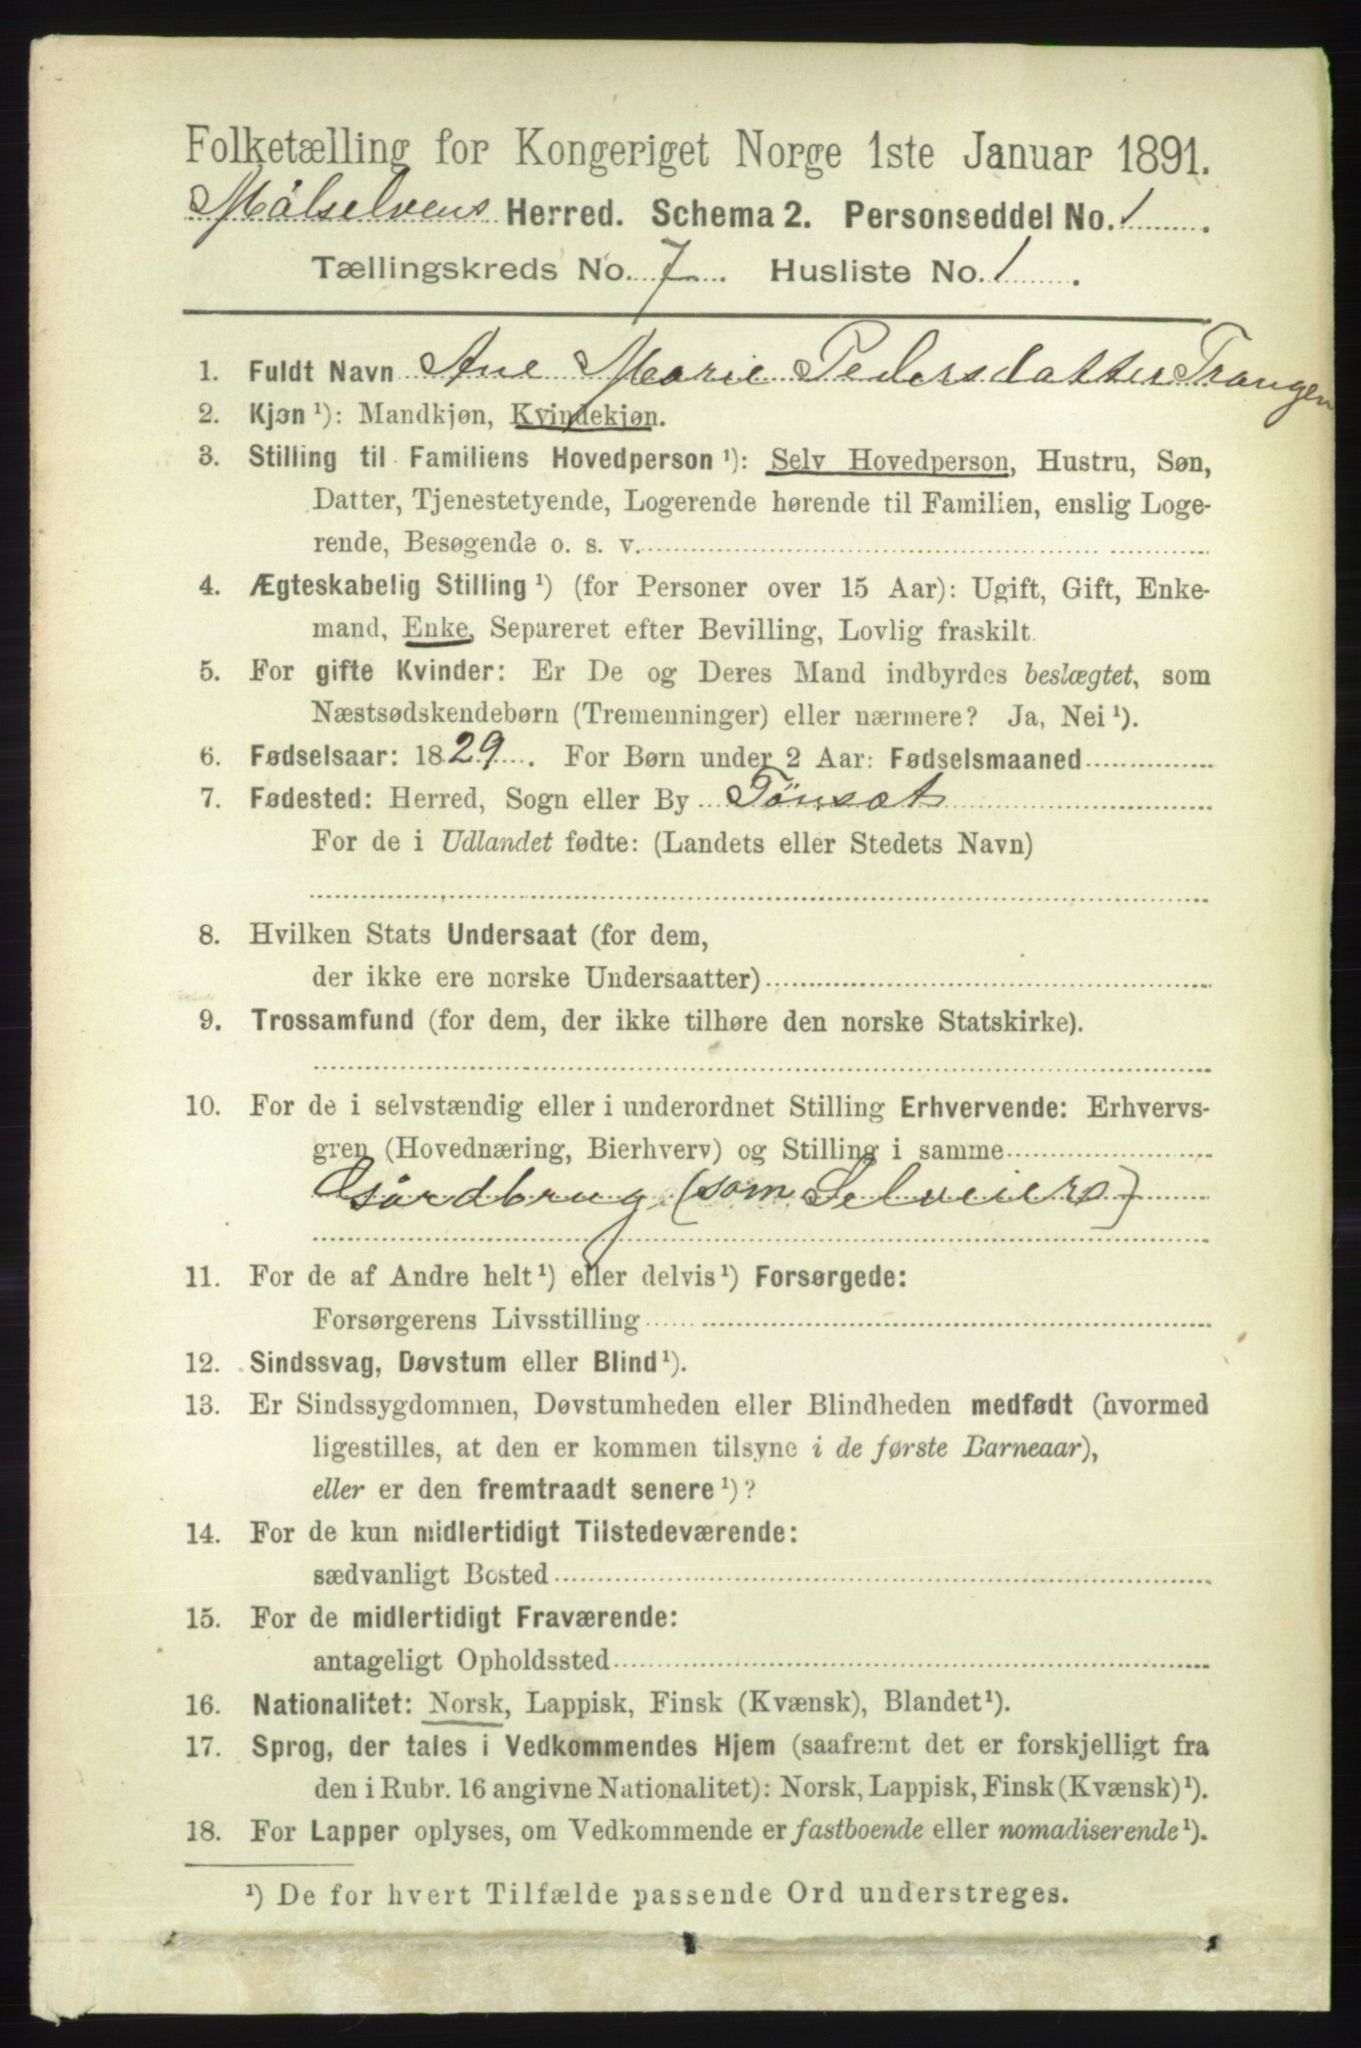 Folketælling for Kongeriget Norge 1ste Januar 1891.
Målselvens Herred. Schema 2. Personseddel No. 1.
Tællingskreds No. 7. Husliste No. 1.
1. Fuldt Navn Ane Marie Pedersdatter Trangen
2. Kjøn ¹): Mandkjøn, Kvindekjøn.
3. Stilling til Familiens Hovedperson ¹): Selv Hovedperson, Hustru, Søn,
Datter, Tjenestetyende, Logerende hørende til Familien, enslig Loge-
rende, Besøgende o. s. v.
4. Ægteskabelig Stilling ¹) (for Personer over 15 Aar): Ugift, Gift, Enke-
mand, Enke, Separeret efter Bevilling, Lovlig fraskilt.
5. For gifte Kvinder: Er De og Deres Mand indbyrdes beslægtet, som
Næstsødskendebørn (Tremenninger) eller nærmere? Ja, Nei ¹).
6. Fødselsaar: 1829. For Børn under 2 Aar: Fødselsmaaned
7. Fødested: Herred, Sogn eller By Tönsæt
For de i Udlandet fødte: (Landets eller Stedets Navn)
8. Hvilken Stats Undersaat (for dem,
der ikke ere norske Undersaatter)
9. Trossamfund (for dem, der ikke tilhøre den norske Statskirke).
10. For de i selvstændig eller i underordnet Stilling Erhvervende: Erhvervs-
gren (Hovednæring, Bierhverv) og Stilling i samme
Gårdbrug (som Selveiers)
11. For de af Andre helt ¹) eller delvis ¹) Forsørgede:
Forsørgerens Livsstilling
12. Sindssvag, Døvstum eller Blind ¹).
13. Er Sindssygdommen, Døvstumheden eller Blindheden medfødt (hvormed
ligestilles, at den er kommen tilsyne i de første Barneaar),
eller er den fremtraadt senere ¹)?
14. For de kun midlertidigt Tilstedeværende:
sædvanligt Bosted
15. For de midlertidigt Fraværende:
antageligt Opholdssted
16. Nationalitet: Norsk, Lappisk, Finsk (Kvænsk), Blandet ¹).
17. Sprog, der tales i Vedkommendes Hjem (saafremt det er forskjelligt fra
den i Rubr. 16 angivne Nationalitet): Norsk, Lappisk, Finsk (Kvænsk) ¹).
18. For Lapper oplyses, om Vedkommende er fastboende eller nomadiserende ¹).
¹) De for hvert Tilfælde passende Ord understreges.